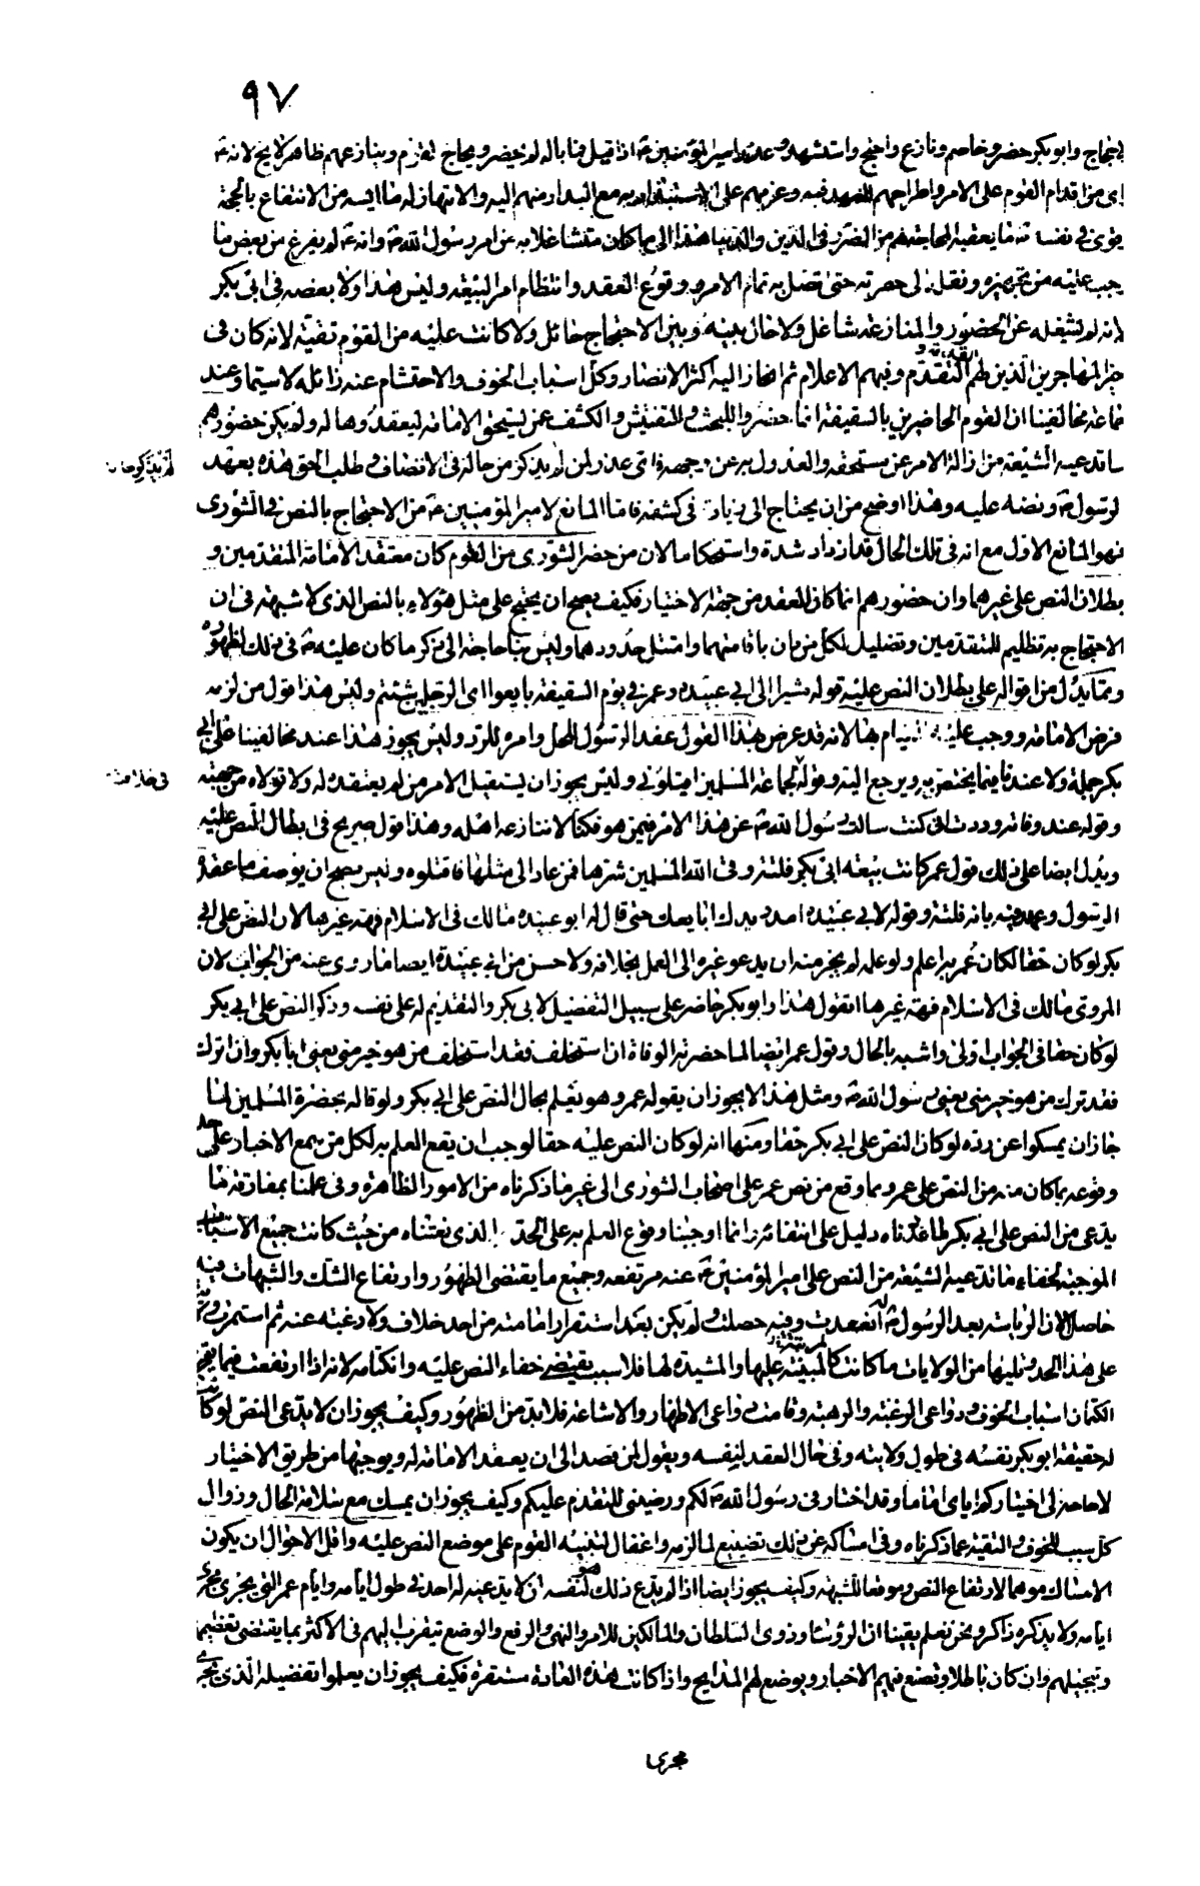 ٩٧
احتجاج وابو بكر حضر وخاصم ونازع واحتج واستشهد وعذر امير المؤمنين ع اذا قيل فما باله لم يحضر ويحاج القوم وينازعهم ظاهر لايح لانه ع
اى من اقدام القوم على الامر واطراحهم للعهد فيه وعزمهم على الاستبداد به مع البدار منهم اليه والانتهاز له ما ايسه من الانتفاع بالحجة
يقوى فى نفسه ما يعقبه المحاجة لهم من الضرر فى الدين والدنيا هذا الى ما كان متشاغلا به من امر رسول الله ص وانه ع لم يفرغ من بعض ما
يجب عليه من تجهيزه ونقله الى حفرته حتى اتصل به تمام الامر ووقوع العقد وانتظام امر البيعة وليس هذا ولا بعضه فى ابى بكر
لانه لم يشغله عن الحضور والمنازعة شاغل ولا حال بينه وبين الاحتجاج حائل ولا كانت عليه من القوم تقية لانه كان فى
حيز المهاجرين الذين لهم التقدم وفيهم الاعلام ثم انحاز اليه اكثر الانصار وكل اسباب الخوف والاحتشام عنه زائلة لا سيما وعند
جماعة مخالفينا ان القوم الحاضرين بالسقيفة انما حضروا للبحث والتفتيش والكشف عمن يستحق الامامة ليعقدوها له ولم يكن حضورهم
ما تدعيه الشيعة من ازالة الامر عن مستحقه والعدول به عن وجهه فاى عذر لمن لم يذكر من حاله فى الانصاف وطلب الحق هذه بعهد
لم يذكر حا
الرسول ص ونصه عليه وهذا اوضح من ان يحتاج الى زيادة فى كشفه فاما المانع لامير المؤمنين ع من الاحتجاج بالنص فى الشورى
فهو المانع الاول مع انه فى تلك الحال قد ازداد شدة واستحكاما لان من حضر الشورى من القوم كان معتقد الامامة المتقدمين و
بطلان النص على غيرهما وان حضورهم انما كان للعقد من جهة الاختيار فكيف يصح ان يحتج على مثل هؤلاء بالنص الذى لا شبهة فى ان
الاحتجاج به تظليم للمتقدمين وتضليل لكل من دان بامامتهما وامتثل حدودهما وليس بنا حاجة الى ذكر ما كان عليه ع فى ذلك لظهوره
ومما يدل من اقواله على بطلان النص عليه قوله مشيرا الى ابى عبيدة وعمر فى يوم السقيفة بايعوا اى الرجلين شئتم وليس هذا قول من لزمه
فرض الامامة ووجب عليه القيام بها لانه قد عرض بهذا القول عقد الرسول للحل وامره للرد وليس يجوز هذا عند مخالفينا على ابى
بكر جملة ولا عندنا فيما يختص به ويرجع اليه وقوله لجماعة المسلمين اقيلونى وليس يجوز ان يستقيل الامر من لم يعقده له ولا تولاه من جهته
وقوله عند وفاته وددت انى كنت سالت رسول الله ص عن هذا الامر فيمن هو فكنا لا ننازعه اهله وهذا قول صريح فى ابطال النص عليه
ويدل ايضا على ذلك قول عمر كانت بيعة ابى بكر فلتة وقى الله المسلمين شرها فمن عاد الى مثلها فاقتلوه وليس يصح ان يوصف ما عقده
الرسول وعهد فيه بانه فلتة وقوله لابى عبيدة امدد يدك ابايعك حتى قال له ابو عبيدة مالك فى الاسلام فهة غيرها لان النص على ابى
بكر لو كان حقا لكان عمر به اعلم ولو علمه لم يجز منه ان يدعو غيره الى العمل بخلافه ولا حسن من ابى عبيدة ايضا ما روى عنه من الجواب لان
المروى مالك فى الاسلام فهة غيرها اتقول هذا وابو بكر حاضر على سبيل التفضيل لابى بكر والتقديم له على نفسه وذكر النص على ابى بكر
لو كان حقا فى الجواب اولى واشبه بالحال وقول عمر ايضا لما حضرته الوفاة ان استخلف فقد استخلف من هو خير منى يعنى ابا بكر وان اترك
فقد ترك من هو خير منى يعنى رسول الله ص ومثل هذا لا يجوز ان يقوله عمر وهو يعلم بحال النص على ابى بكر ولو قاله بحضرة المسلمين لما
جاز ان يمسكوا عن رده لو كان النص على ابى بكر حقا ومنها انه لو كان النص عليه حقا لوجب ان يقع العلم به لكل من سمع الاخبار على حد
وقوعه بما كان منه من النص على عمر وما وقع من نص عمر على اصحاب الشورى الى غير ما ذكرناه من الامور الظاهرة وفى علمنا بمفارقة ما
يدعى من النص على ابى بكر لما عددناه دليل على انتفائه وانما اوجبنا وقوع العلم به على الحد الذى نعتناه من حيث كانت جميع الاسباب
الموجبة لخفاء ما تدعيه الشيعة من النص على امير المؤمنين ع عنه مرتفعة وجميع ما يقتضى الظهور وارتفاع الشك والشبهات فيه
حاصل لان الرياسة بعد الرسول ص له انعقدت وفيه حصلت ولم يكن بعد استقرار امامته من احد خلاف ولا رغبة عنه ثم استمرت
على هذا الحد وتليها من الولايات ما كانت كالمبنية عليها والمشيدة لها فلا سبب يقتضى خفاء النص عليه وانكتامه لانه اذا ارتفعت فيما يقتضى
الكتمان اسباب الخوف ودواعى الرغبة والرهبة وقامت دواعى الاظهار والاشاعة فلا بد من الظهور وكيف يجوز ان لا يدعى النص لو كانت
له حقيقة ابو بكر نفسه فى طول ولايته وفى حال العقد لنفسه ويقول لمن قصد الى ان يعقد الامامة له ويوجبها من طريق الاختيار
لا حاجة الى اختياركم اياى اماما وقد اختارنى رسول الله ص لكم ورضينى للتقدم عليكم وكيف يجوز ان يمسك مع سلامة الحال وزوال
كل سبب للخوف والتقية عما ذكرناه وفى امساكه عن ذلك تضييع لما لزمه واغفال لتنبيه القوم على موضع النص عليه واقل الاحوال ان يكون
الامساك موهما لارتفاع النص وموقعا للشبهة وكيف يجوز ايضا اذا لم يدع ذلك هو لنفسه ان لا يدعيه له احد فى طول ايامه وايام عمر التى يجرى مجرى
ايامه ولا يذكره ذاكر ونحن نعلم يقينا ان الرؤساء وذوى السلطان والمالكين للامر والنهى والرفع والوضع يتقرب اليهم فى الاكثر بما يقتضى تعظيمهم
وتبجيلهم وان كان باطلا وتصنع فيهم الاخبار ويوضع لهم المدايح واذا كانت هذه العادة مستقرة فكيف يجوز ان يعلموا تفضيله الذى يجرى
مجرى